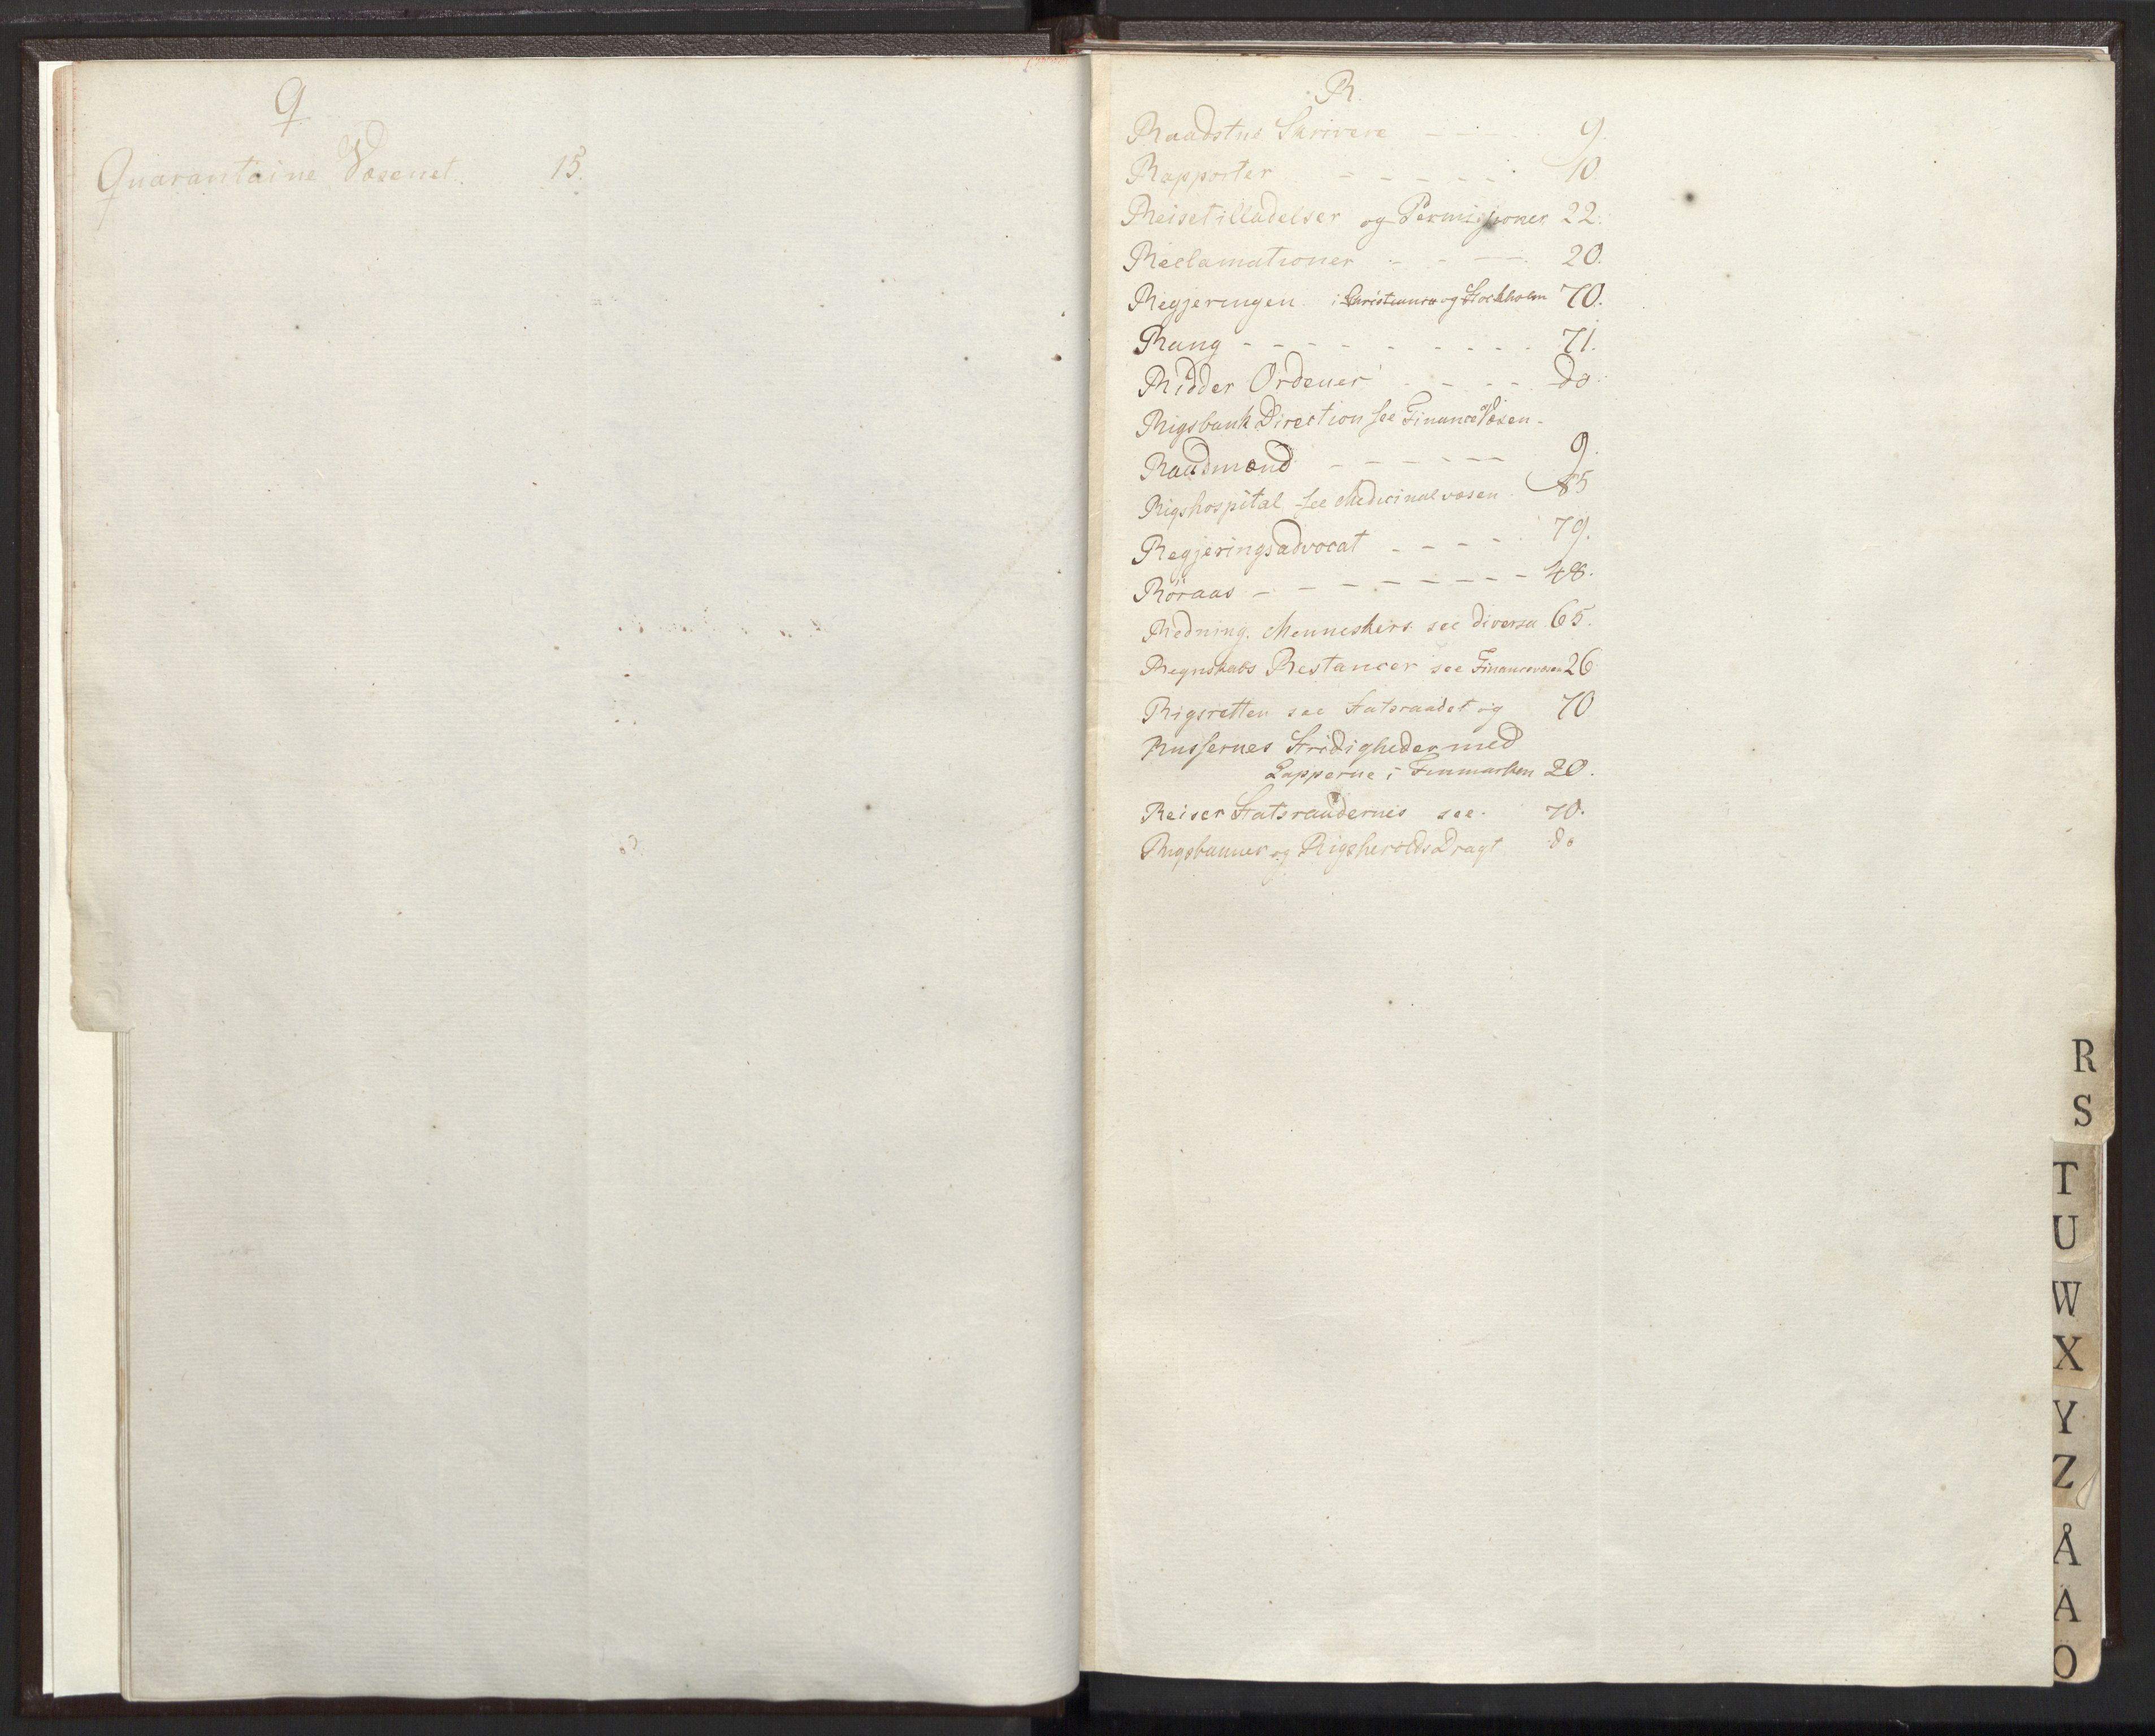 Q
Quarantaine Væsenet. 15.
R.
Raadstue Skrivere - - - - 9.
Rapporter - - - - - 10.
Reisetilladelser og Permissioner 22.
Reclamationer - - - - 20.
Regjeringen i Christiania og Stockholm 70.
Rang - - - - - - - - - 71.
Ridder Ordener - - - - do.
Rigsbank Direction see Finance Væsen -
Raadmænd - - - - - - 9.
Rigshospital see Medicinalvæsen 85
Regjeringsadvocat - - - - - 79.
Röraas - - - - - - - - 48.
Redning. Menneskers see diversa 65.
Regnskabs Restancer see Financevæsen 26
Rigsretten see Statsraadet og 70
Russernes Stridigheder med
Lapperne i Finmarken 20.
Reiser Statsraadernes see 70.
Rigsbanner og Rigsherolds Dragt do
R
S
T
U
W
X
Y
Z
Å
A
O